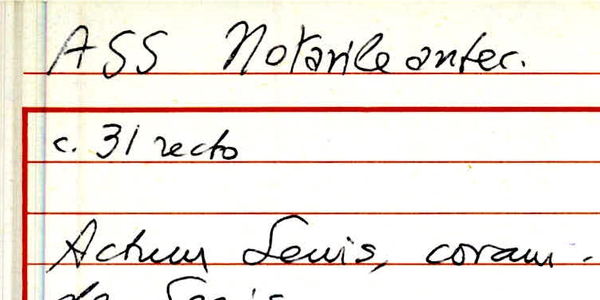 ASS Notarile antec.
c. 31 recto
Actum Senis, coram
de Senis